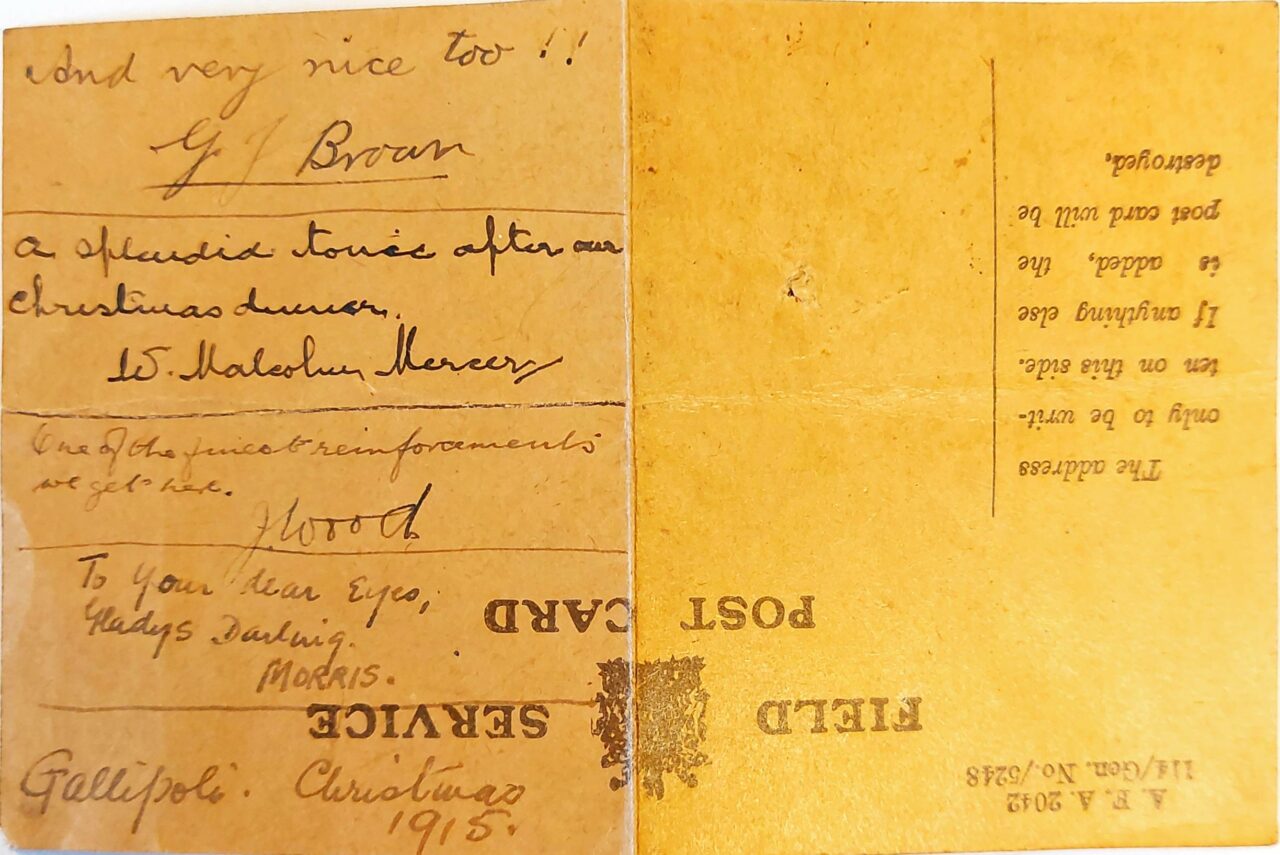 And very nice too !!
G J Broan
A splendid tonic after our
Christmas dinner.
W. Malcolm Mercer
One of the finest reinforcements
we get here.
J Wood
To your dear Eyes,
Gladys Darling.
MORRIS.
Gallipoli. Christmas
1915.
A. F. A. 2042
114/Gen. No./5248
FIELD SERVICE
POST CARD
The address
only to be writ-
ten on this side.
If anything else
is added, the
post card will be
destroyed.